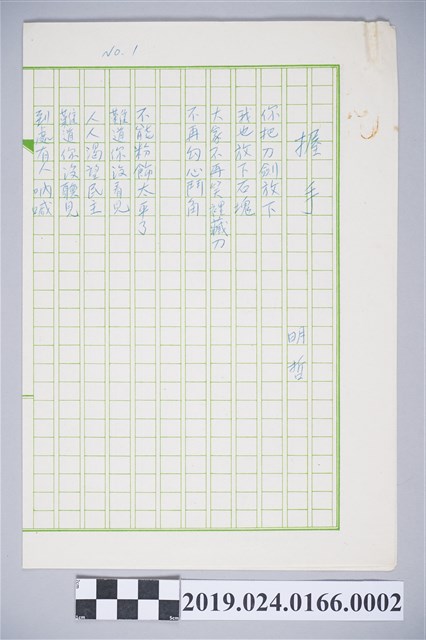 No. 1
握手
明哲
你把刀劍放下
我也放下石塊
大家不再笑裡藏刀
不再勾心鬥角
不能粉飾太平了
難道你沒看見
人人渴望民主
難道你沒聽見
到處有人吶喊
5cm
2019.024.0166.0002